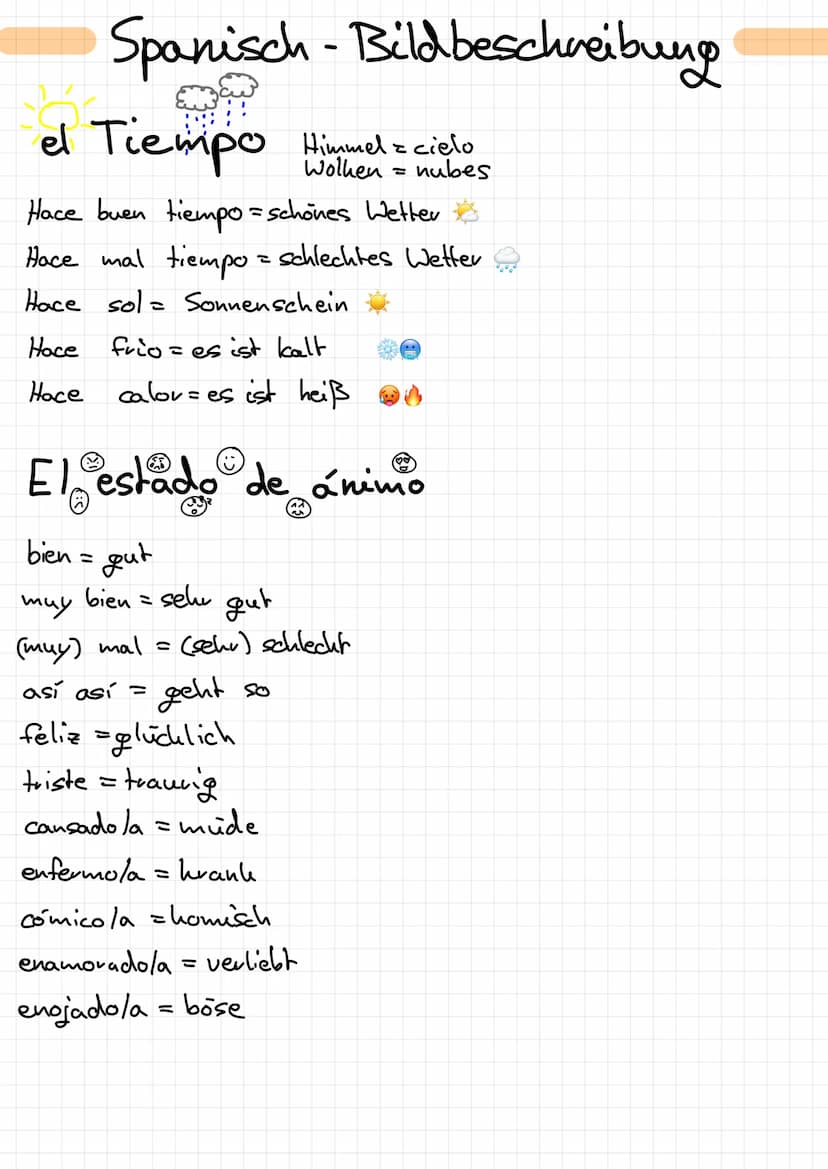 Spanisch - Bildbeschreibung
el Tiempo
Himmel = cielo
Wolken = nubes
Hace buen tiempo = schönes Wetter 🌤️
Hace mal tiempo = schlechtes Wetter 🌧️
Hace sol = Sonnenschein ☀️
Hace frio = es ist kalt ❄️🥶
Hace calor = es ist heiß 🥵🔥
El estado de ánimo
bien = gut
muy bien = sehr gut
(muy) mal = (sehr) schlecht
así así = geht so
feliz = glücklich
triste = traurig
cansado/a = müde
enfermo/a = krank
cómico/a = komisch
enamorado/a = verliebt
enojado/a = böse